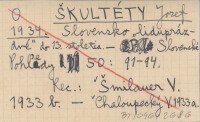 ŠKULTÉTY Josef
1934. Slovensko "liduprázd-
né" do 13. stoletia. - Slovenské
Pohľady 50: 91-94.
Rec.: Šmilauer V.
1933 b. - Chaloupecký V. 1933a